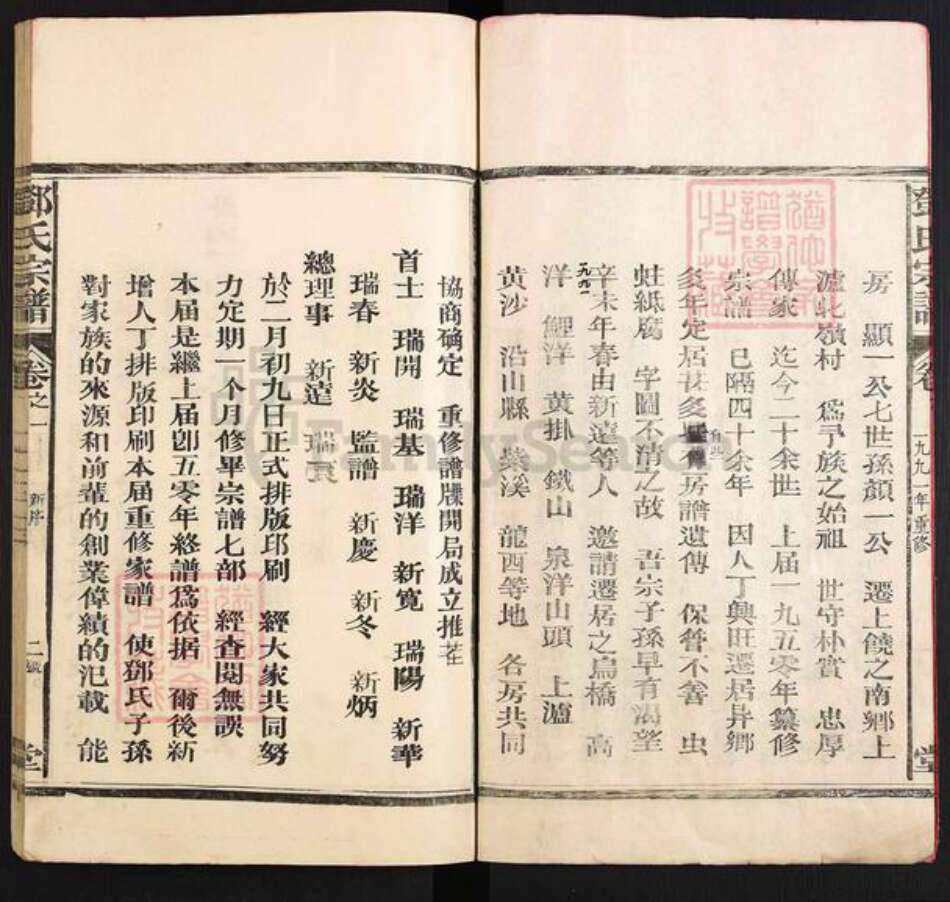 鄧氏宗譜
卷
一九九一年重修
堂
房 顯一公七世孫顏一公 遷上饒之南鄉上
瀘北嶺村 爲予族之始祖 世守朴實 忠厚
傳家 迄今二十余世 上届一九五零年纂修
宗譜 已隔四十余年 因人丁興旺遷居异鄉
多年定居甚多 房譜遺傳 保管不善 虫
蛀紙腐 字圖不清之故 吾宗子孫早有渴望
一九九一
辛未年春由新達等人 邀請遷居之烏橋 高
洋 鯉洋 黄掛 鐵山 泉洋山頭 上瀘
黄沙 浩山縣 葉溪 龍西等地 各房共同
協商确定 重修譜牒開局成立推荏
首士 瑞開 瑞基 瑞洋 新寬 瑞陽 新華
瑞春 新炎 監譜 新慶 新冬 新炳
總理事 新達 瑞寰
於二月初九日正式排版印刷 經大家共同努
力定期一个月修畢宗譜七部 經查閱無誤
本届是繼上届卽五零年終譜爲依据 爾後新
增人丁排版印刷本届重修家譜 使鄧氏子孫
對家族的來源和前輩的創業偉績的氾載 能
鄧氏宗譜
卷之一
新序
二
堂
FamilySearch